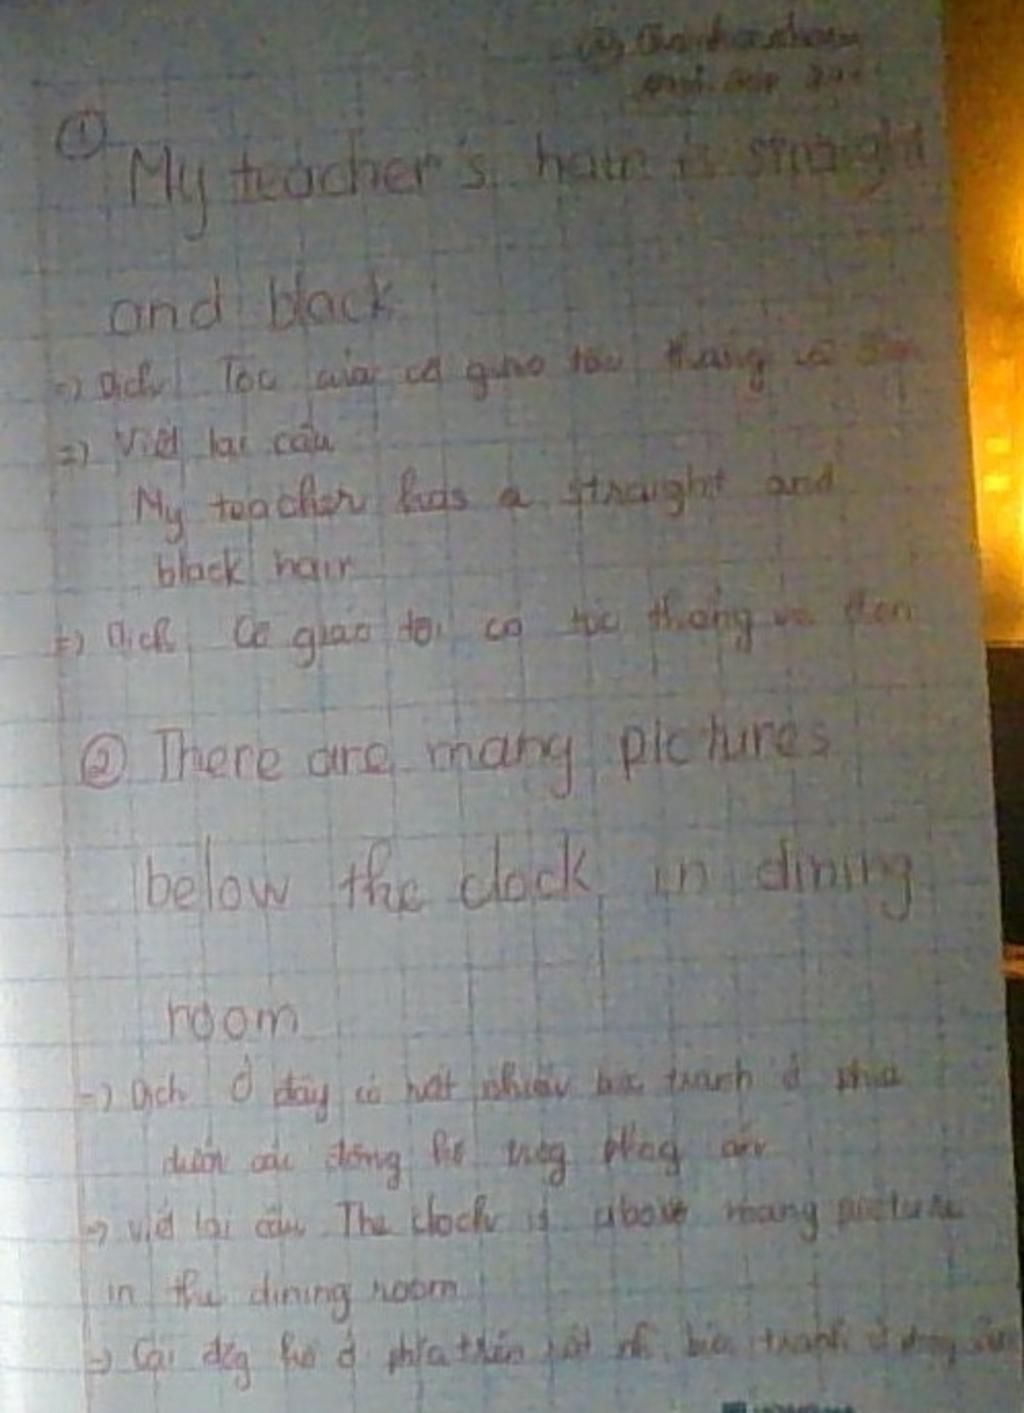 ①
My teacher's hair is straight
and black
=) Dịch Tóc của cô giáo tôi thẳng và đen
=) Viết lại câu
My teacher has a straight and
black hair
=) Dịch Cô giáo tôi có tóc thẳng và đen
② There are many pictures
below the clock in dining
room
=) Dịch Ở đây có rất nhiều bức tranh ở phía
dưới cái đồng hồ trog phòg ăn
=) Viết lại câu The clock is above many picture
in the dining room
=) Cái đồg hồ ở phía trên rất nh bức tranh ở